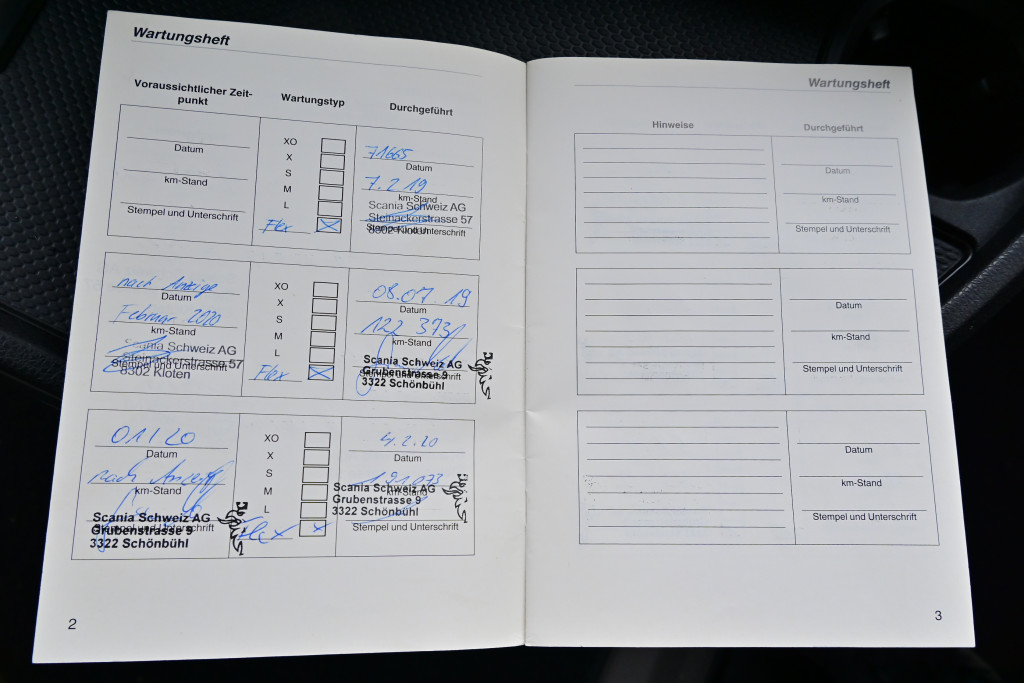 Wartungsheft
Voraussichtlicher Zeit-
punkt
Wartungstyp
Durchgeführt
Datum
km-Stand
Stempel und Unterschrift
XO
X
S
M
L
Flex
71665
Datum
7.2.19
km-Stand
Scania Schweiz AG
Steinackerstrasse 57
8302 Kloten
Stempel und Unterschrift
nach Anzeige
Datum
Februar 2020
km-Stand
Scania Schweiz AG
Steinackerstrasse 57
Stempel und Unterschrift
8302 Kloten
XO
X
S
M
L
Flex
08.07 19
Datum
122 373
km-Stand
Scania Schweiz AG
Grubenstrasse 9
Stempel und Unterschrift
3322 Schönbühl
01/20
Datum
nach
km-Stand
Scania Schweiz AG
Grubenstrasse 9
Stempel und Unterschrift
3322 Schönbühl
XO
X
S
M
L
Flex
4.2.20
Datum
191073
km-Stand
Scania Schweiz AG
Grubenstrasse 9
3322 Schönbühl
Stempel und Unterschrift
2
Wartungsheft
Hinweise
Durchgeführt
Datum
km-Stand
Stempel und Unterschrift
Datum
km-Stand
Stempel und Unterschrift
Datum
km-Stand
Stempel und Unterschrift
3